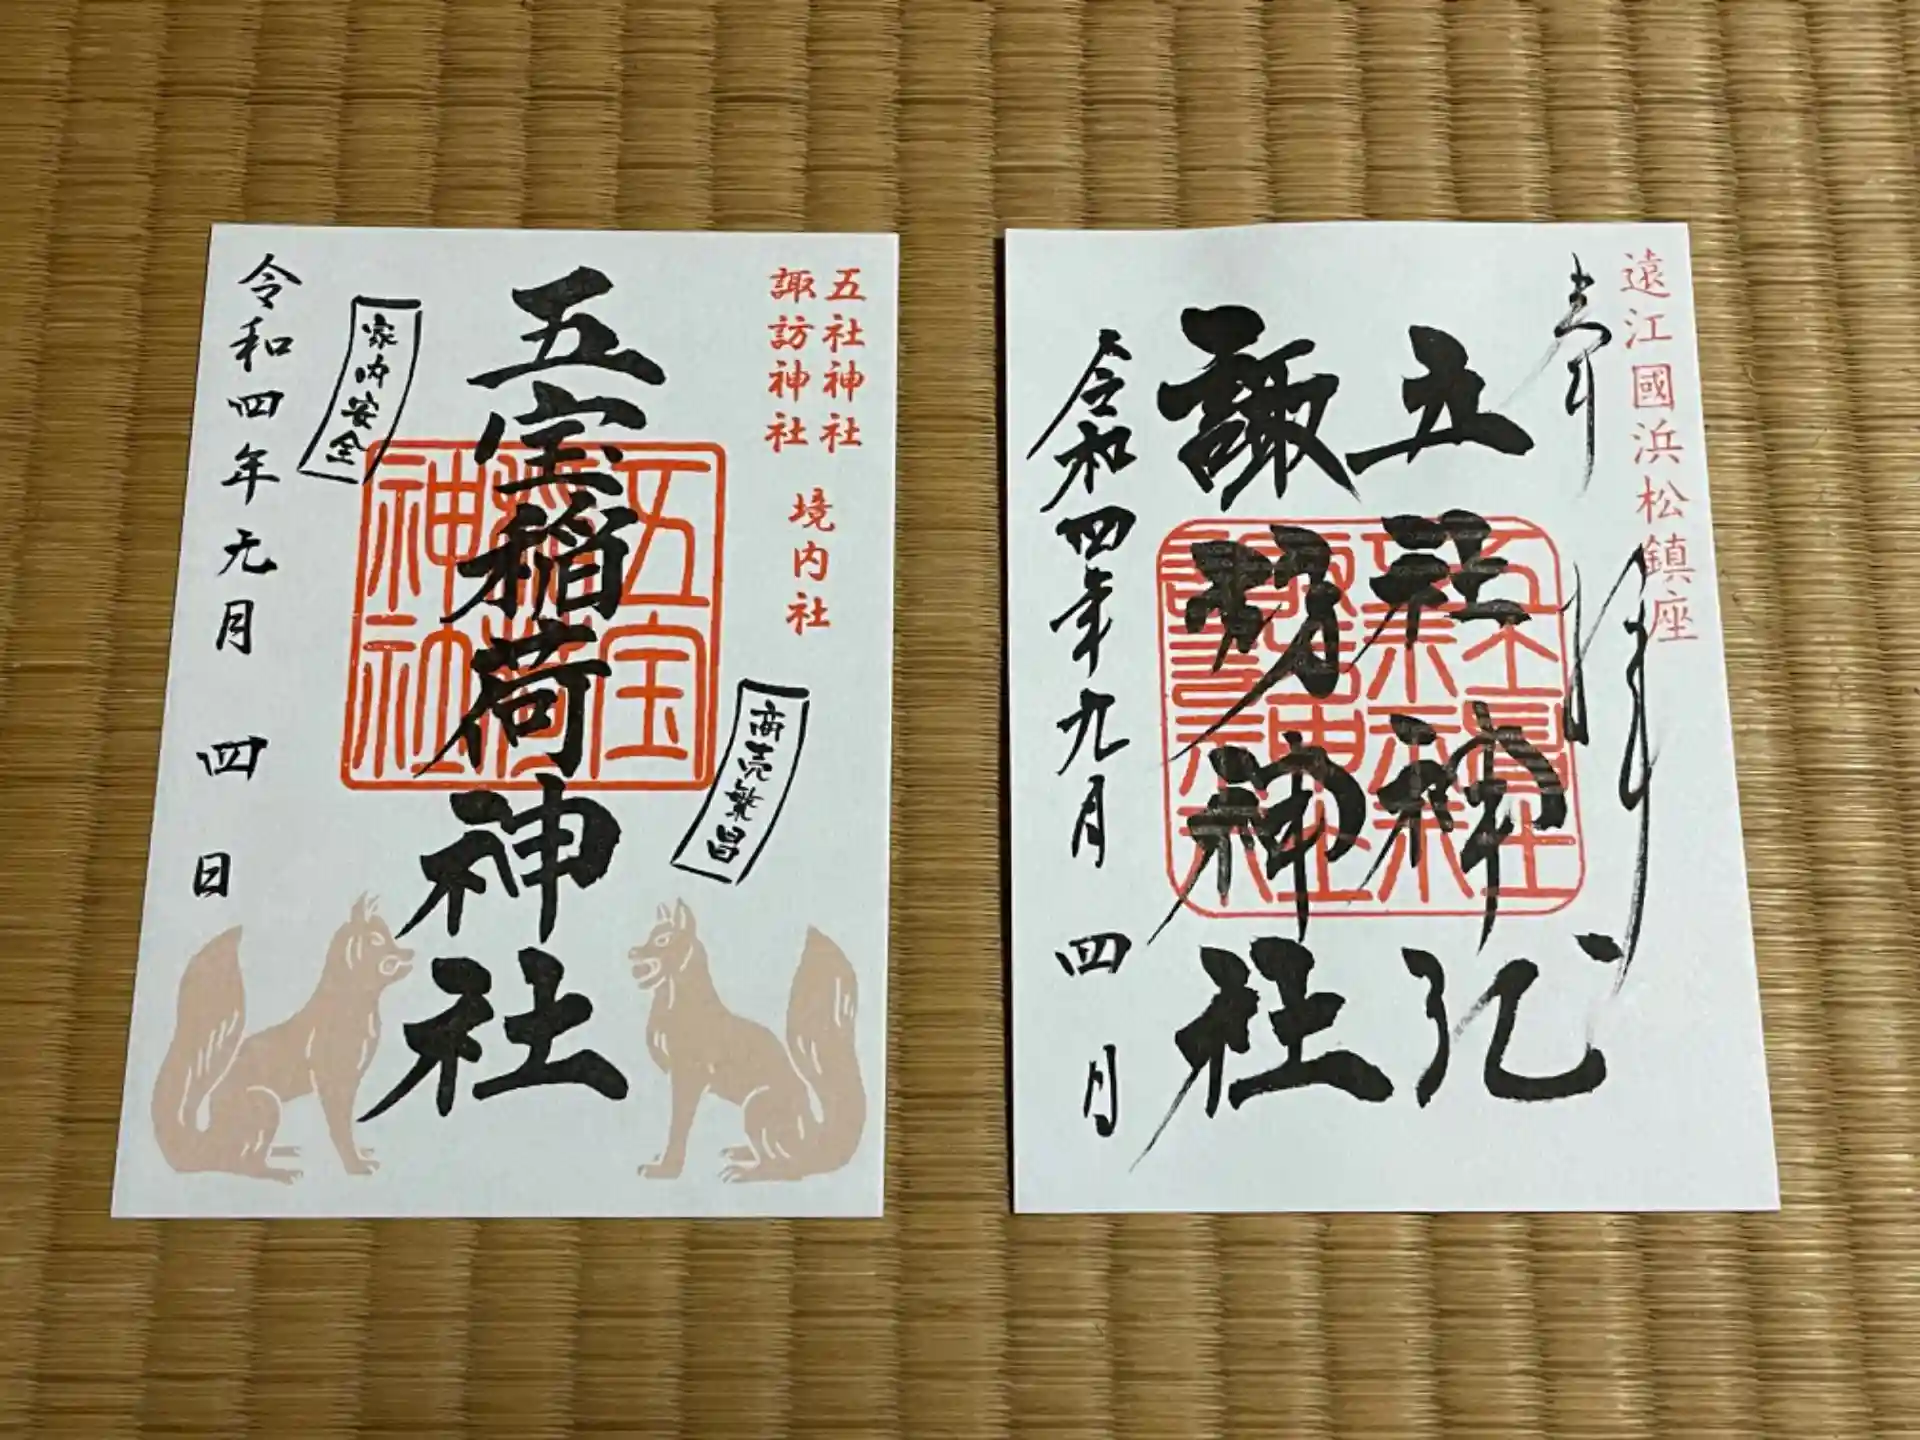 五社神社
諏訪神社
境内社
商売繁昌
五宝稲荷神社
五宝稲荷神社
家内安全
令和四年元月四日
遠江國浜松鎮座
奉拝
五社神社
諏訪神社
令和四年九月四日